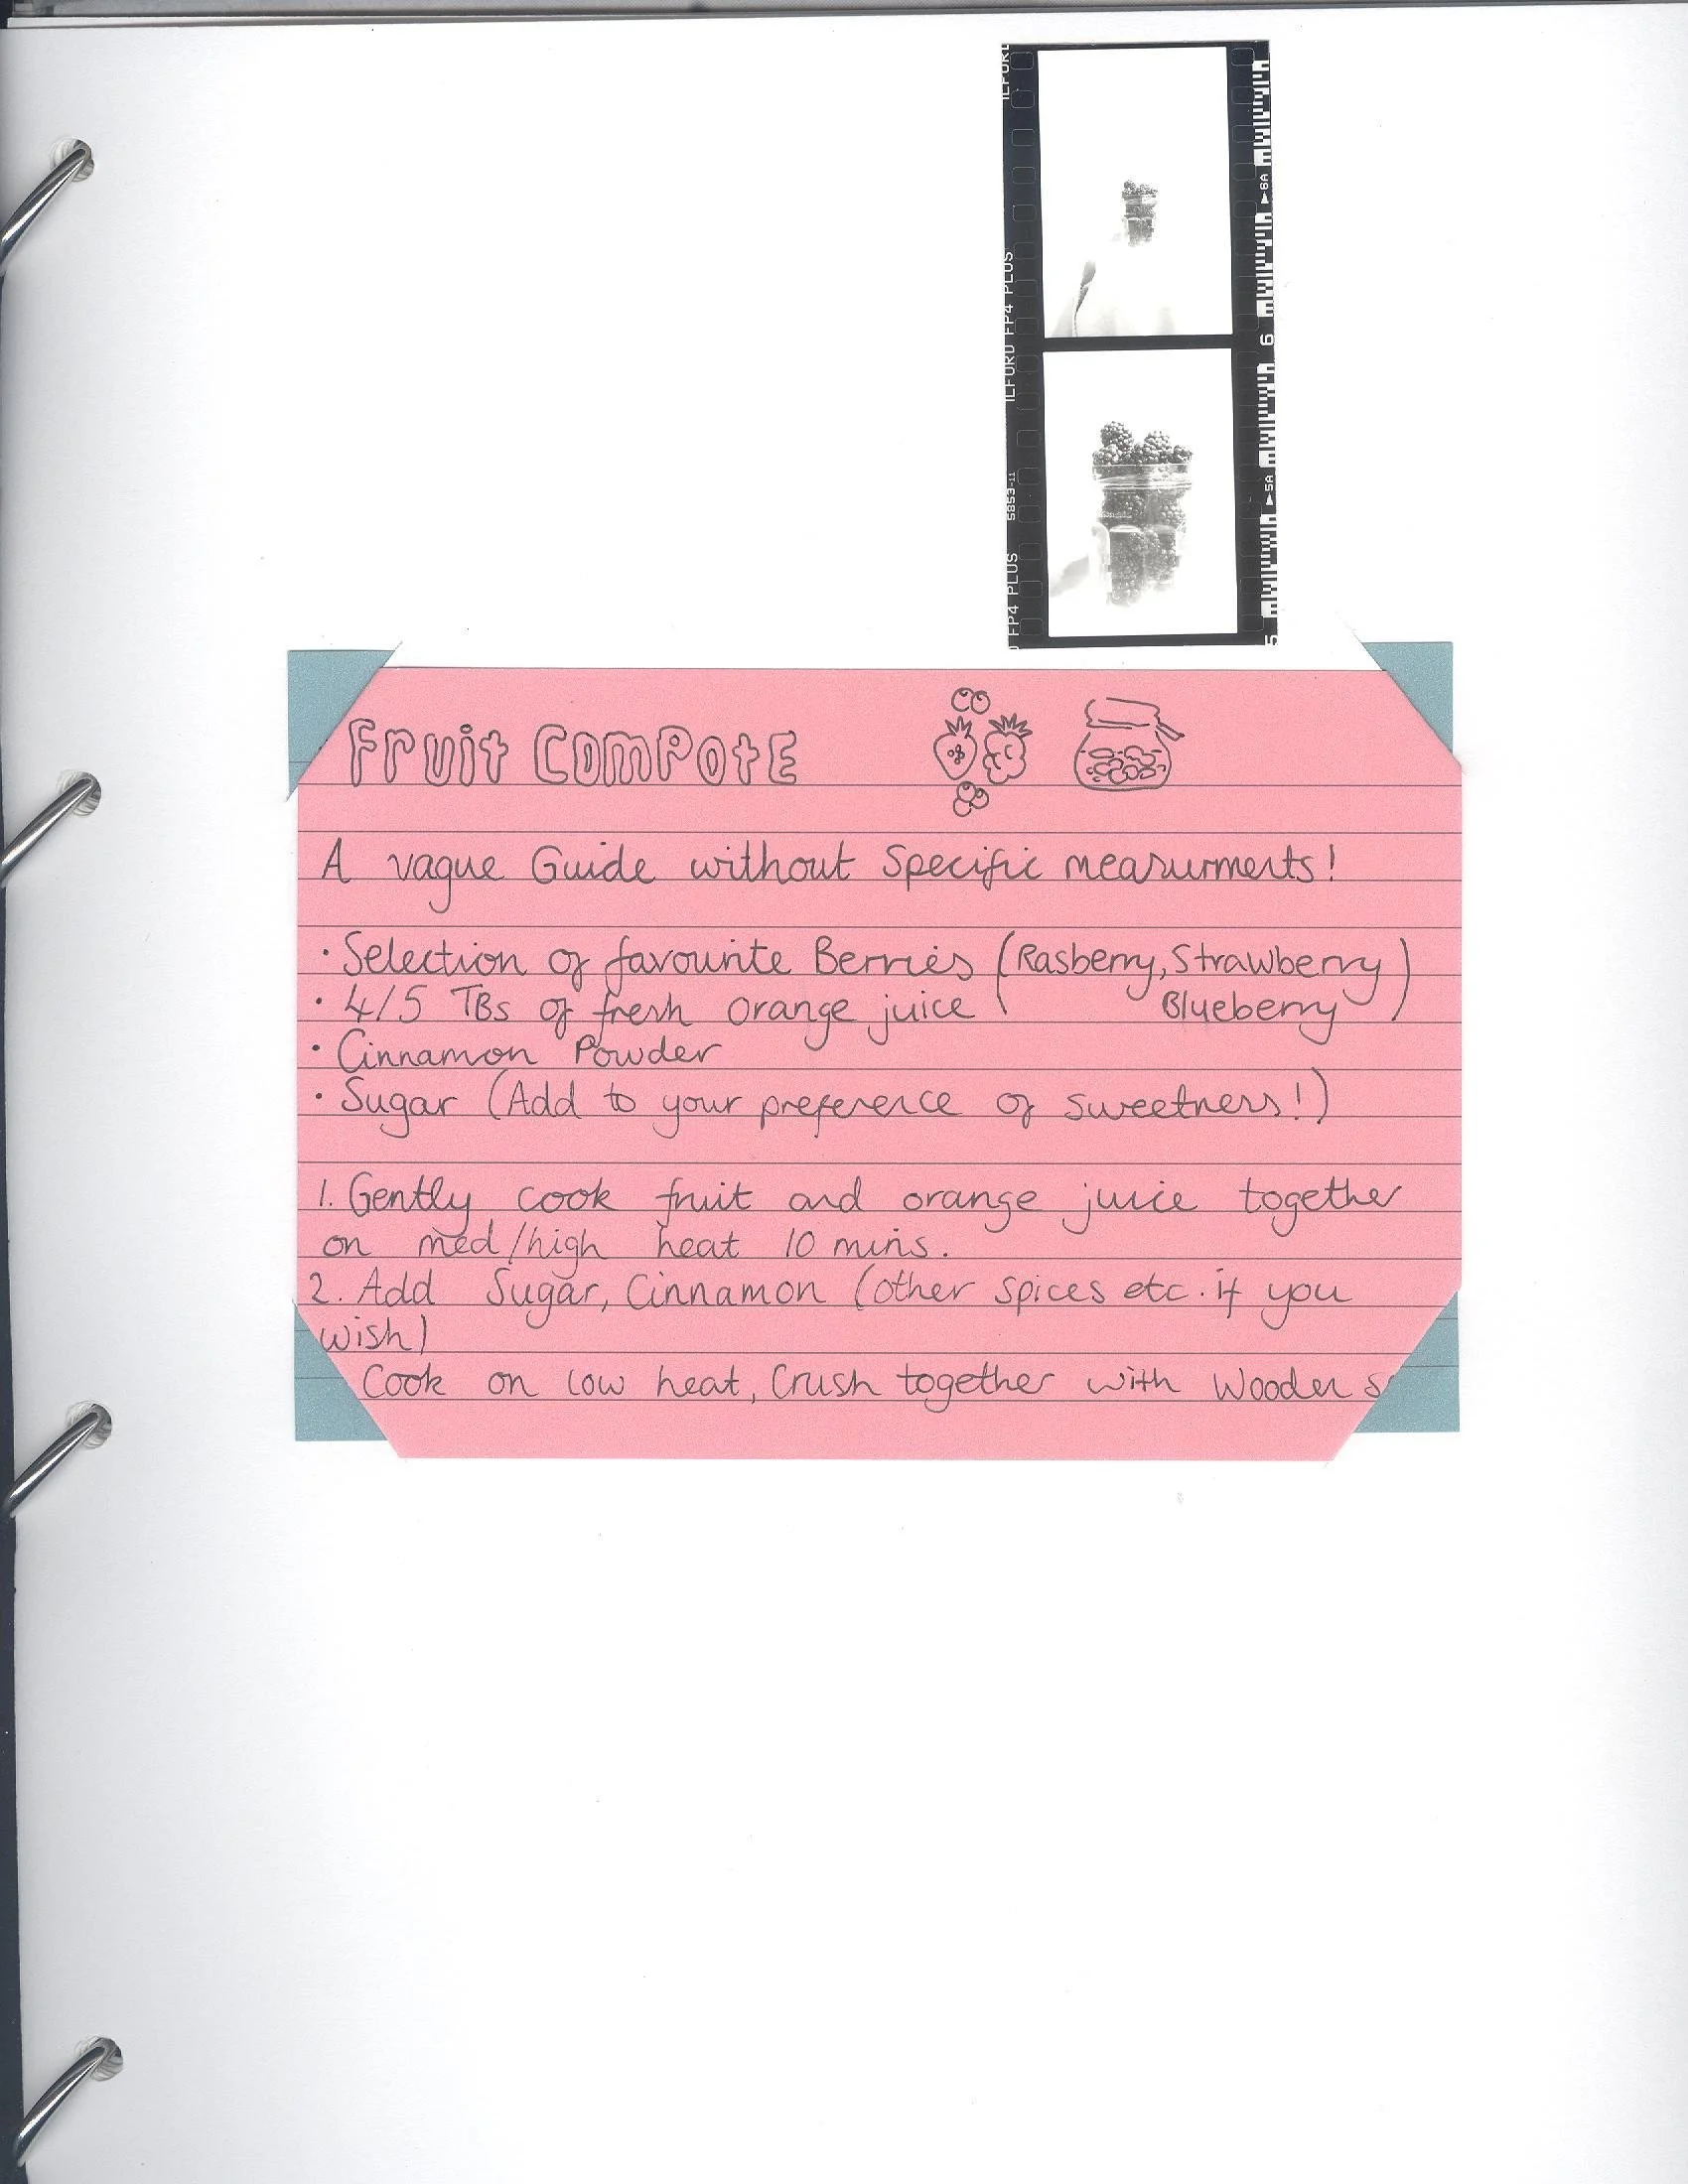 ILFORD
ILFORD FP4 PLUS
FP4 PLUS
6A
6
5A
5
Fruit Compote
A vague Guide without Specific measurments!
· Selection of favourite Berries (Rasberry, Strawberry
· 4/5 TBs of fresh orange juice Blueberry)
· Cinnamon Powder
· Sugar (Add to your preference of sweetness!)
1. Gently cook fruit and orange juice together
on med/high heat 10 mins.
2. Add Sugar, Cinnamon (other spices etc. if you
wish)
Cook on low heat, Crush together with Wooden